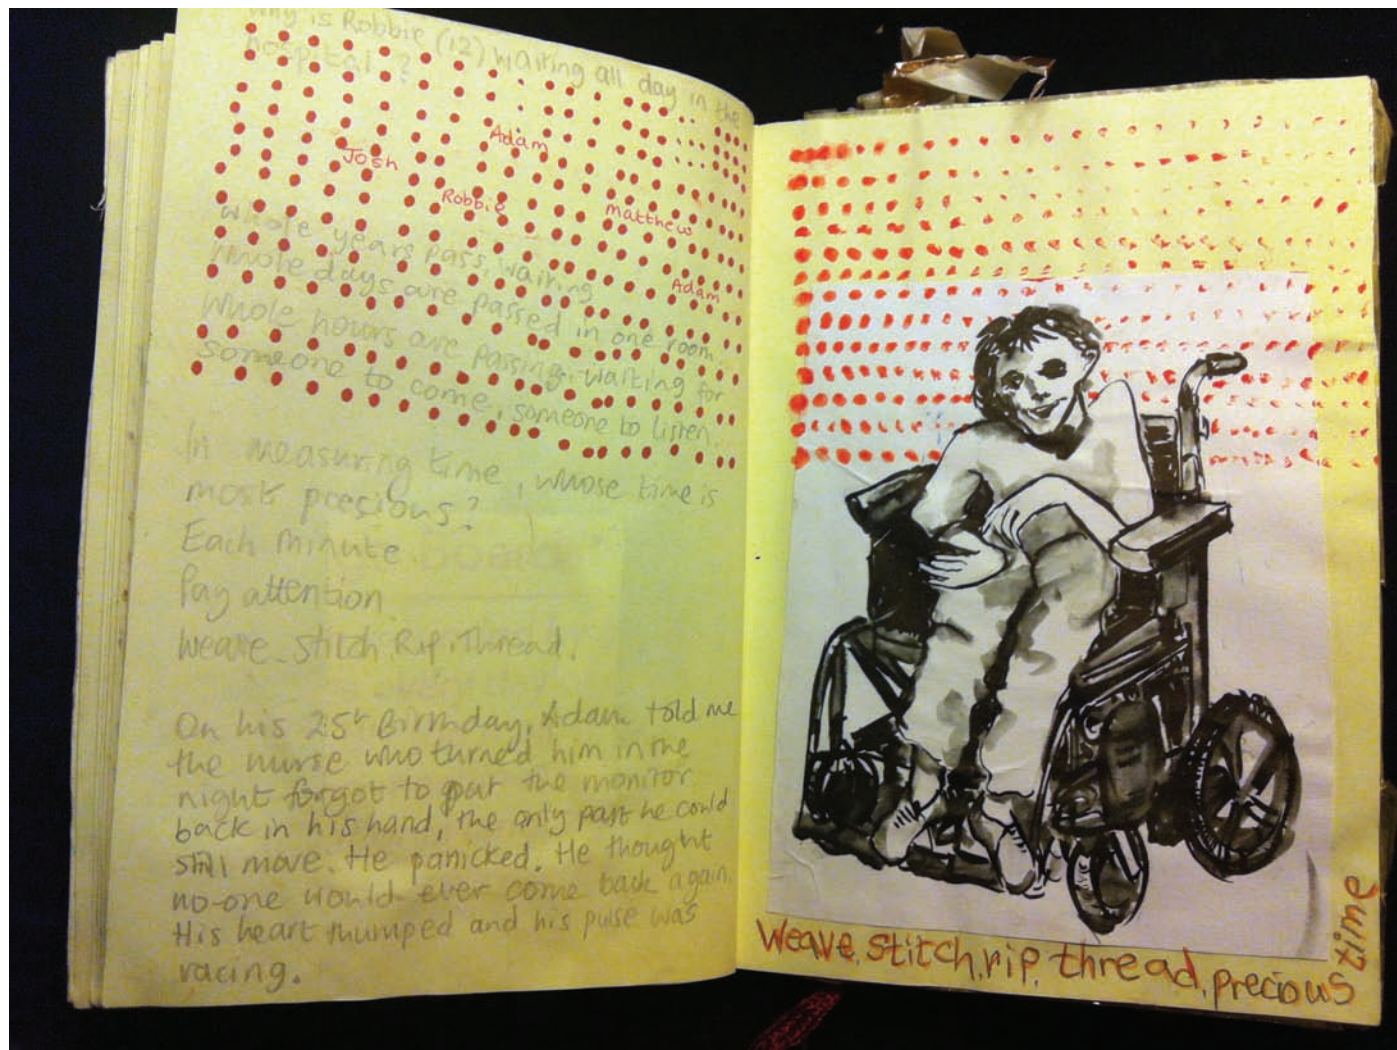 Why is Robbie (12) waiting all day in the
hospital?
Adam
Josh
Robbie
Matthew
Whole years pass, waiting
Whole days are passed in one room.
Adam
Whole hours are passing, waiting for
someone to come, someone to listen.
In measuring time, whose time is
most precious?
Each minute
Pay attention
Weave. Stitch. Rip. Thread.
On his 25th Birthday, Adam told me
the nurse who turned him in the
night forgot to put the monitor
back in his hand, the only part he could
still move. He panicked. He thought
no-one would ever come back again.
His heart thumped and his pulse was
racing.
Weave, stitch, rip, thread, precious
time